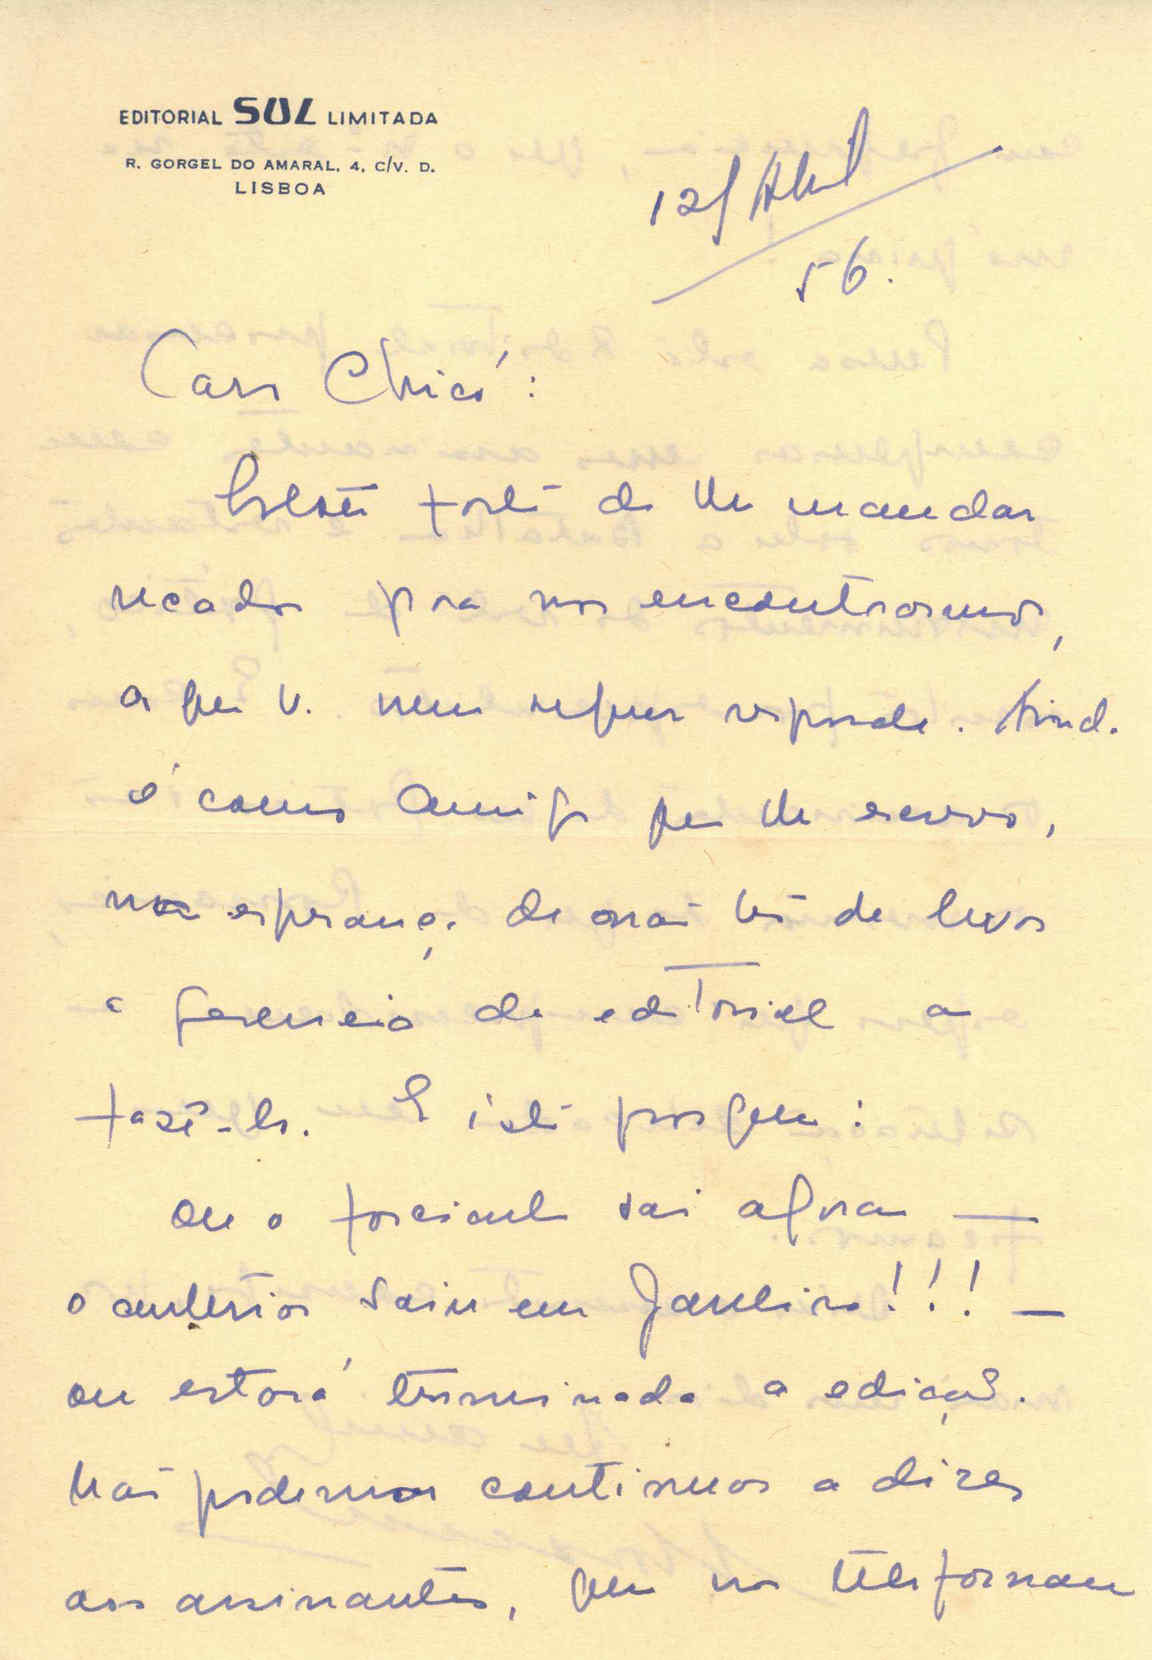 EDITORIAL SUL LIMITADA
R. GORGEL DO AMARAL, 4, C/V. D.
LISBOA
12/Abril
56.
Caro Chicó:
forte de lhe mandar
recados pra nos encontrarmos,
a que V. nem sequer responde. Aind.
é como amigo que lhe escrevo,
na esperança de não ter de levar
a gerencia da editorial a
fazê-lo. E isto porque:
ou o fasciculo sai agora —
o anterior saiu em Janeiro!!! —
ou estará terminada a edição.
Não podemos continuar a dizer
aos assinantes, que nos telefonam